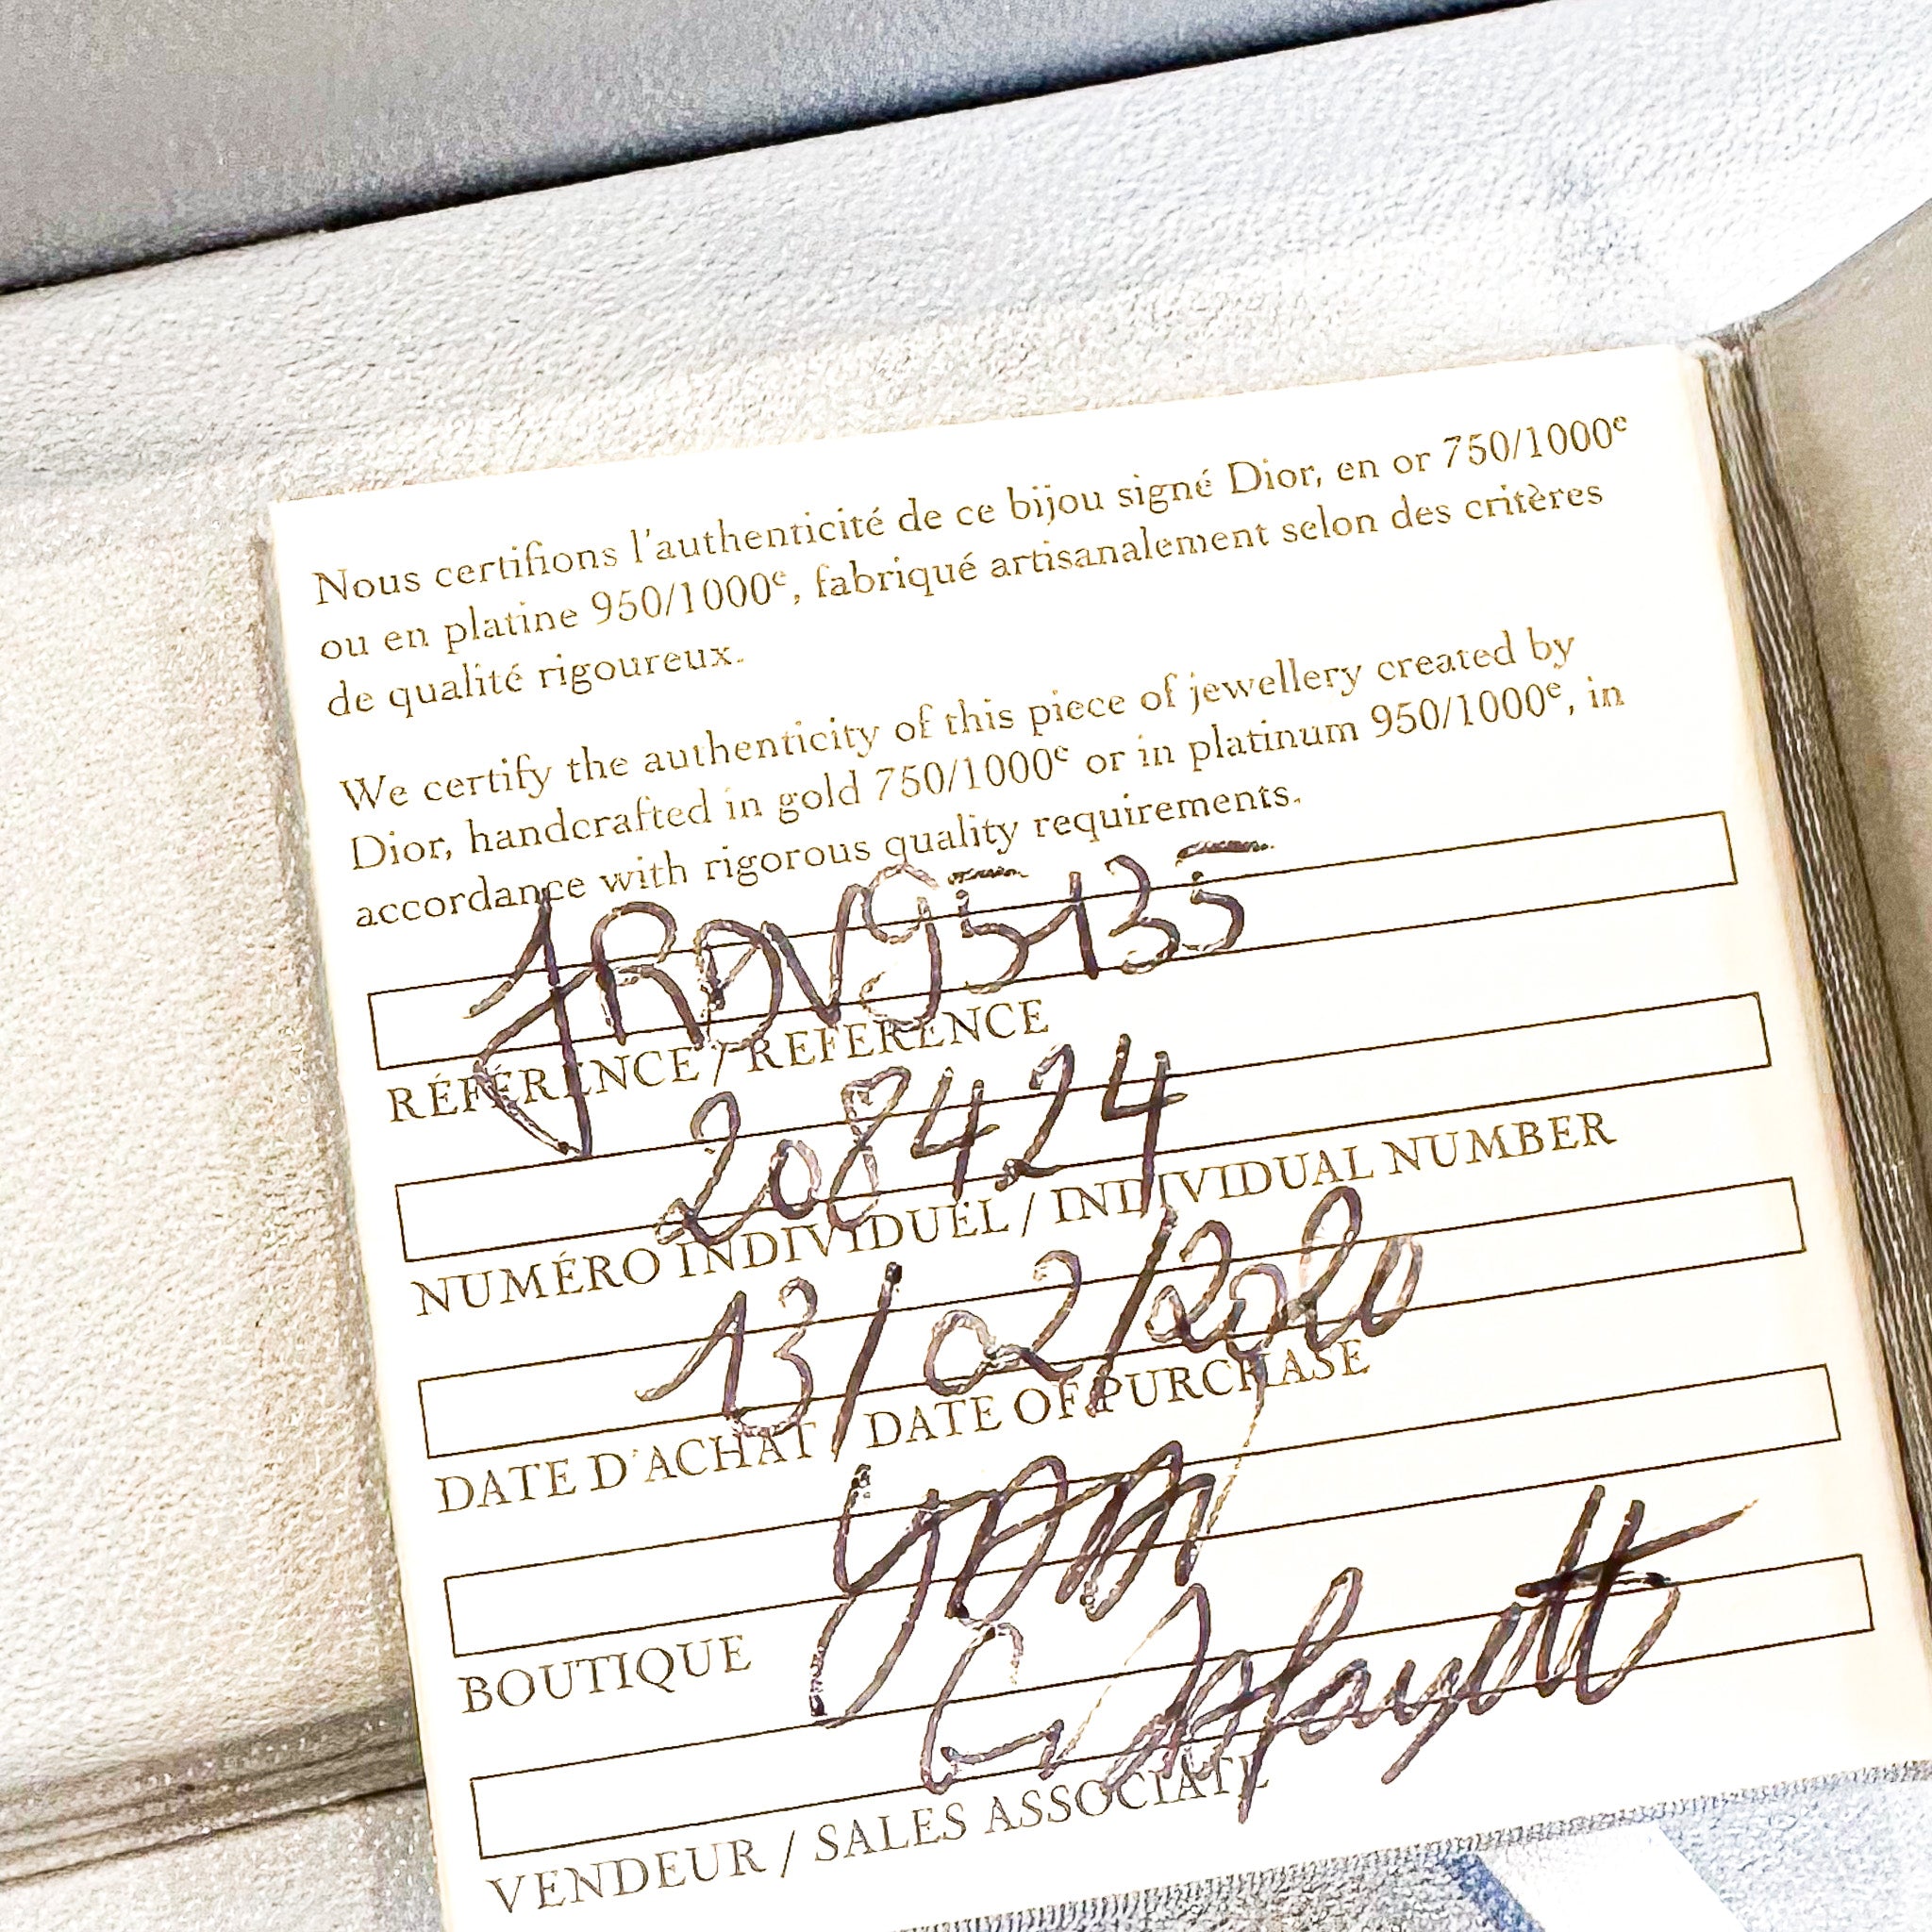 Nous certifions l'authenticité de ce bijou signé Dior, en or 750/1000e
ou en platine 950/1000e, fabriqué artisanalement selon des critères
de qualité rigoureux.
We certify the authenticity of this piece of jewellery created by
Dior, handcrafted in gold 750/1000e or in platinum 950/1000e, in
accordance with rigorous quality requirements.
JRDV95135
RÉFÉRENCE / REFERENCE
208424
NUMÉRO INDIVIDUEL / INDIVIDUAL NUMBER
13/02/2020
DATE D'ACHAT / DATE OF PURCHASE
BOUTIQUE
Lafayette
VENDEUR / SALES ASSOCIATE